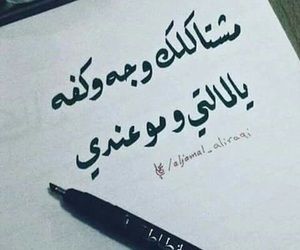 مشتاكلك وجه وكفه
ياللالتي ومو عندي
/aljamal_aliraqi